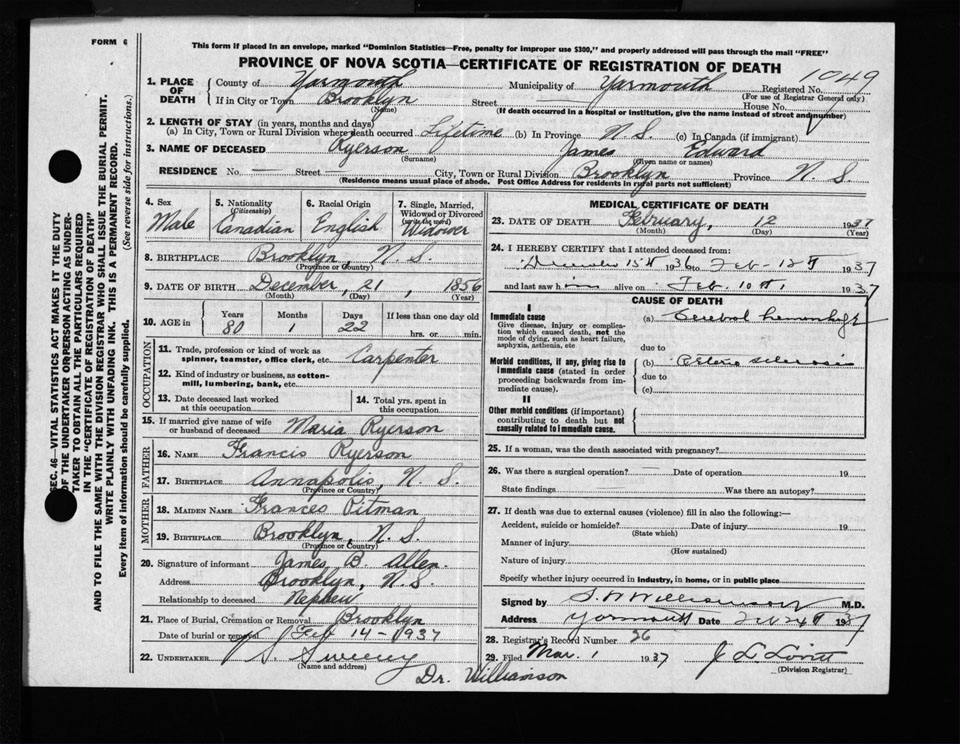 FORM 6
This form if placed in an envelope, marked "Dominion Statistics—Free, penalty for improper use $300," and properly addressed will pass through the mail "FREE"
PROVINCE OF NOVA SCOTIA—CERTIFICATE OF REGISTRATION OF DEATH
1049
1. PLACE OF DEATH
County of Yarmouth Municipality of Yarmouth Registered No.
(For use of Registrar General only)
If in City or Town Brooklyn Street House No.
(Name)
(If death occurred in a hospital or institution, give the name instead of street and number)
2. LENGTH OF STAY (in years, months and days)
(a) In City, Town or Rural Division where death occurred Lifetime (b) In Province N.S. (c) In Canada (if immigrant)
3. NAME OF DECEASED Ryerson James Edward
(Surname) (Given name or names)
RESIDENCE No. — Street — City, Town or Rural Division Brooklyn Province N. S.
(Residence means usual place of abode. Post Office Address for residents in rural parts not sufficient)
4. Sex
Male
5. Nationality
(Citizenship)
Canadian
6. Racial Origin
English
7. Single, Married, Widowed or Divorced
(write the word)
Widower
8. BIRTHPLACE Brooklyn, N. S.
(Province or Country)
9. DATE OF BIRTH December, 21, 1856
(Month) (Day) (Year)
10. AGE in
Years Months Days If less than one day old
80 1 22 hrs. or min.
OCCUPATION
11. Trade, profession or kind of work as spinner, teamster, office clerk, etc. Carpenter
12. Kind of industry or business, as cotton-mill, lumbering, bank, etc.
13. Date deceased last worked at this occupation
14. Total yrs. spent in this occupation
15. If married give name of wife or husband of deceased Maria Ryerson
FATHER
16. NAME Francis Ryerson
17. BIRTHPLACE Annapolis, N. S.
(Province or Country)
MOTHER
18. MAIDEN NAME Frances Pitman
19. BIRTHPLACE Brooklyn, N. S.
(Province or Country)
20. Signature of informant James B. Allen.
Address Brooklyn, N.S.
Relationship to deceased Nephew
21. Place of Burial, Cremation or Removal Brooklyn
Date of burial or removal Feb 14-1937
22. UNDERTAKER Sweeny
(Name and address)
Dr. Williamson
MEDICAL CERTIFICATE OF DEATH
23. DATE OF DEATH February, 12 1937
(Month) (Day) (Year)
24. I HEREBY CERTIFY that I attended deceased from:
December 15th 1936 to Feb-12th 1937
and last saw him alive on Feb. 10th 1937
CAUSE OF DEATH
I
Immediate cause
Give disease, injury or complication which caused death, not the mode of dying, such as heart failure, asphyxia, asthenia, etc
(a) Cerebral hemorrhage
due to
Morbid conditions, if any, giving rise to immediate cause (stated in order proceeding backwards from immediate cause).
(b) Arterio sclerosis
due to
(c)
II
Other morbid conditions (if important) contributing to death but not causally related to immediate cause.
25. If a woman, was the death associated with pregnancy?
26. Was there a surgical operation? Date of operation 19
State findings Was there an autopsy?
27. If death was due to external causes (violence) fill in also the following:—
Accident, suicide or homicide? Date of injury 19
(State which)
Manner of injury
(How sustained)
Nature of injury
Specify whether injury occurred in industry, in home, or in public place
Signed by S. W. Williamson M.D.
Address Yarmouth Date Feb 24th 1937
28. Registrar's Record Number 26
29. Filed Mar. 1 1937 J. L. Lovitt
(Division Registrar)
SEC. 46—VITAL STATISTICS ACT MAKES IT THE DUTY
OF THE UNDERTAKER OR PERSON ACTING AS UNDER-
TAKER TO OBTAIN ALL THE PARTICULARS REQUIRED
IN THE "CERTIFICATE OF REGISTRATION OF DEATH"
AND TO FILE THE SAME WITH THE DIVISION REGISTRAR WHO SHALL ISSUE THE BURIAL PERMIT.
WRITE PLAINLY WITH UNFADING INK. THIS IS A PERMANENT RECORD.
Every item of information should be carefully supplied. (See reverse side for instructions.)